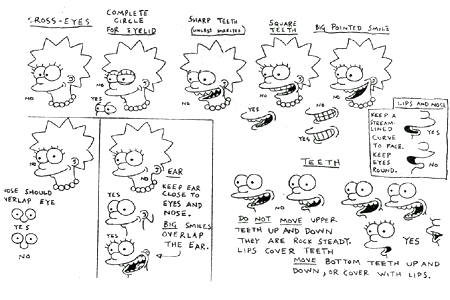 CROSS-EYES
COMPLETE
CIRCLE
FOR EYELID
SHARP TEETH
(UNLESS WORRIED)
SQUARE
TEETH
BIG POINTED SMILE
NO
NO
YES
NO
YES
NO
NO
YES
NO
LIPS AND NOSE
KEEP A
STREAM-
LINED
CURVE
TO FACE.
KEEP
EYES
ROUND.
YES
NO
NO
NOSE SHOULD
OVERLAP EYE
YES
NO
NO
YES
YES
EAR
KEEP EAR
CLOSE TO
EYES AND
NOSE.
BIG SMILES
OVERLAP
THE EAR.
TEETH
DO NOT MOVE UPPER
TEETH UP AND DOWN
THEY ARE ROCK STEADY.
LIPS COVER TEETH
MOVE BOTTOM TEETH UP AND
DOWN, OR COVER WITH LIPS.
YES
NO